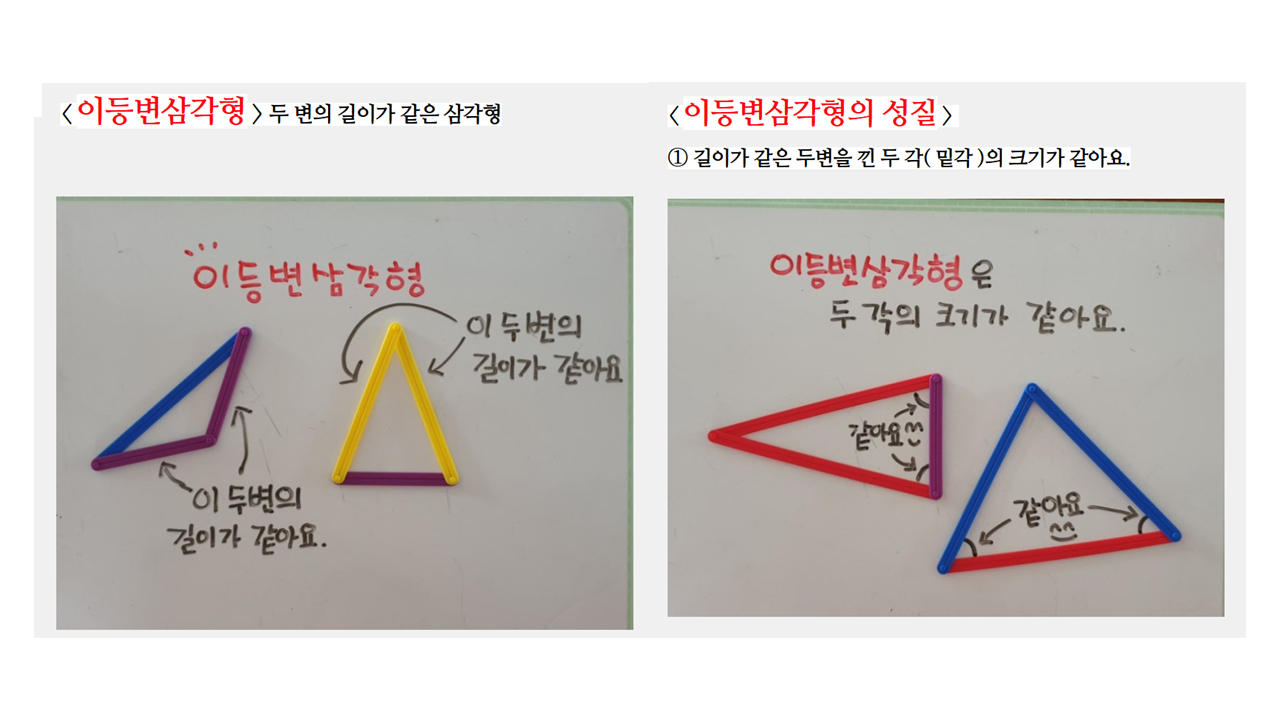 < 이등변삼각형 > 두 변의 길이가 같은 삼각형
이등변삼각형
이 두변의
길이가 같아요
이 두변의
길이가 같아요.
< 이등변삼각형의 성질 >
① 길이가 같은 두변을 낀 두 각( 밑각 )의 크기가 같아요.
이등변삼각형은
두 각의 크기가 같아요.
같아요
같아요